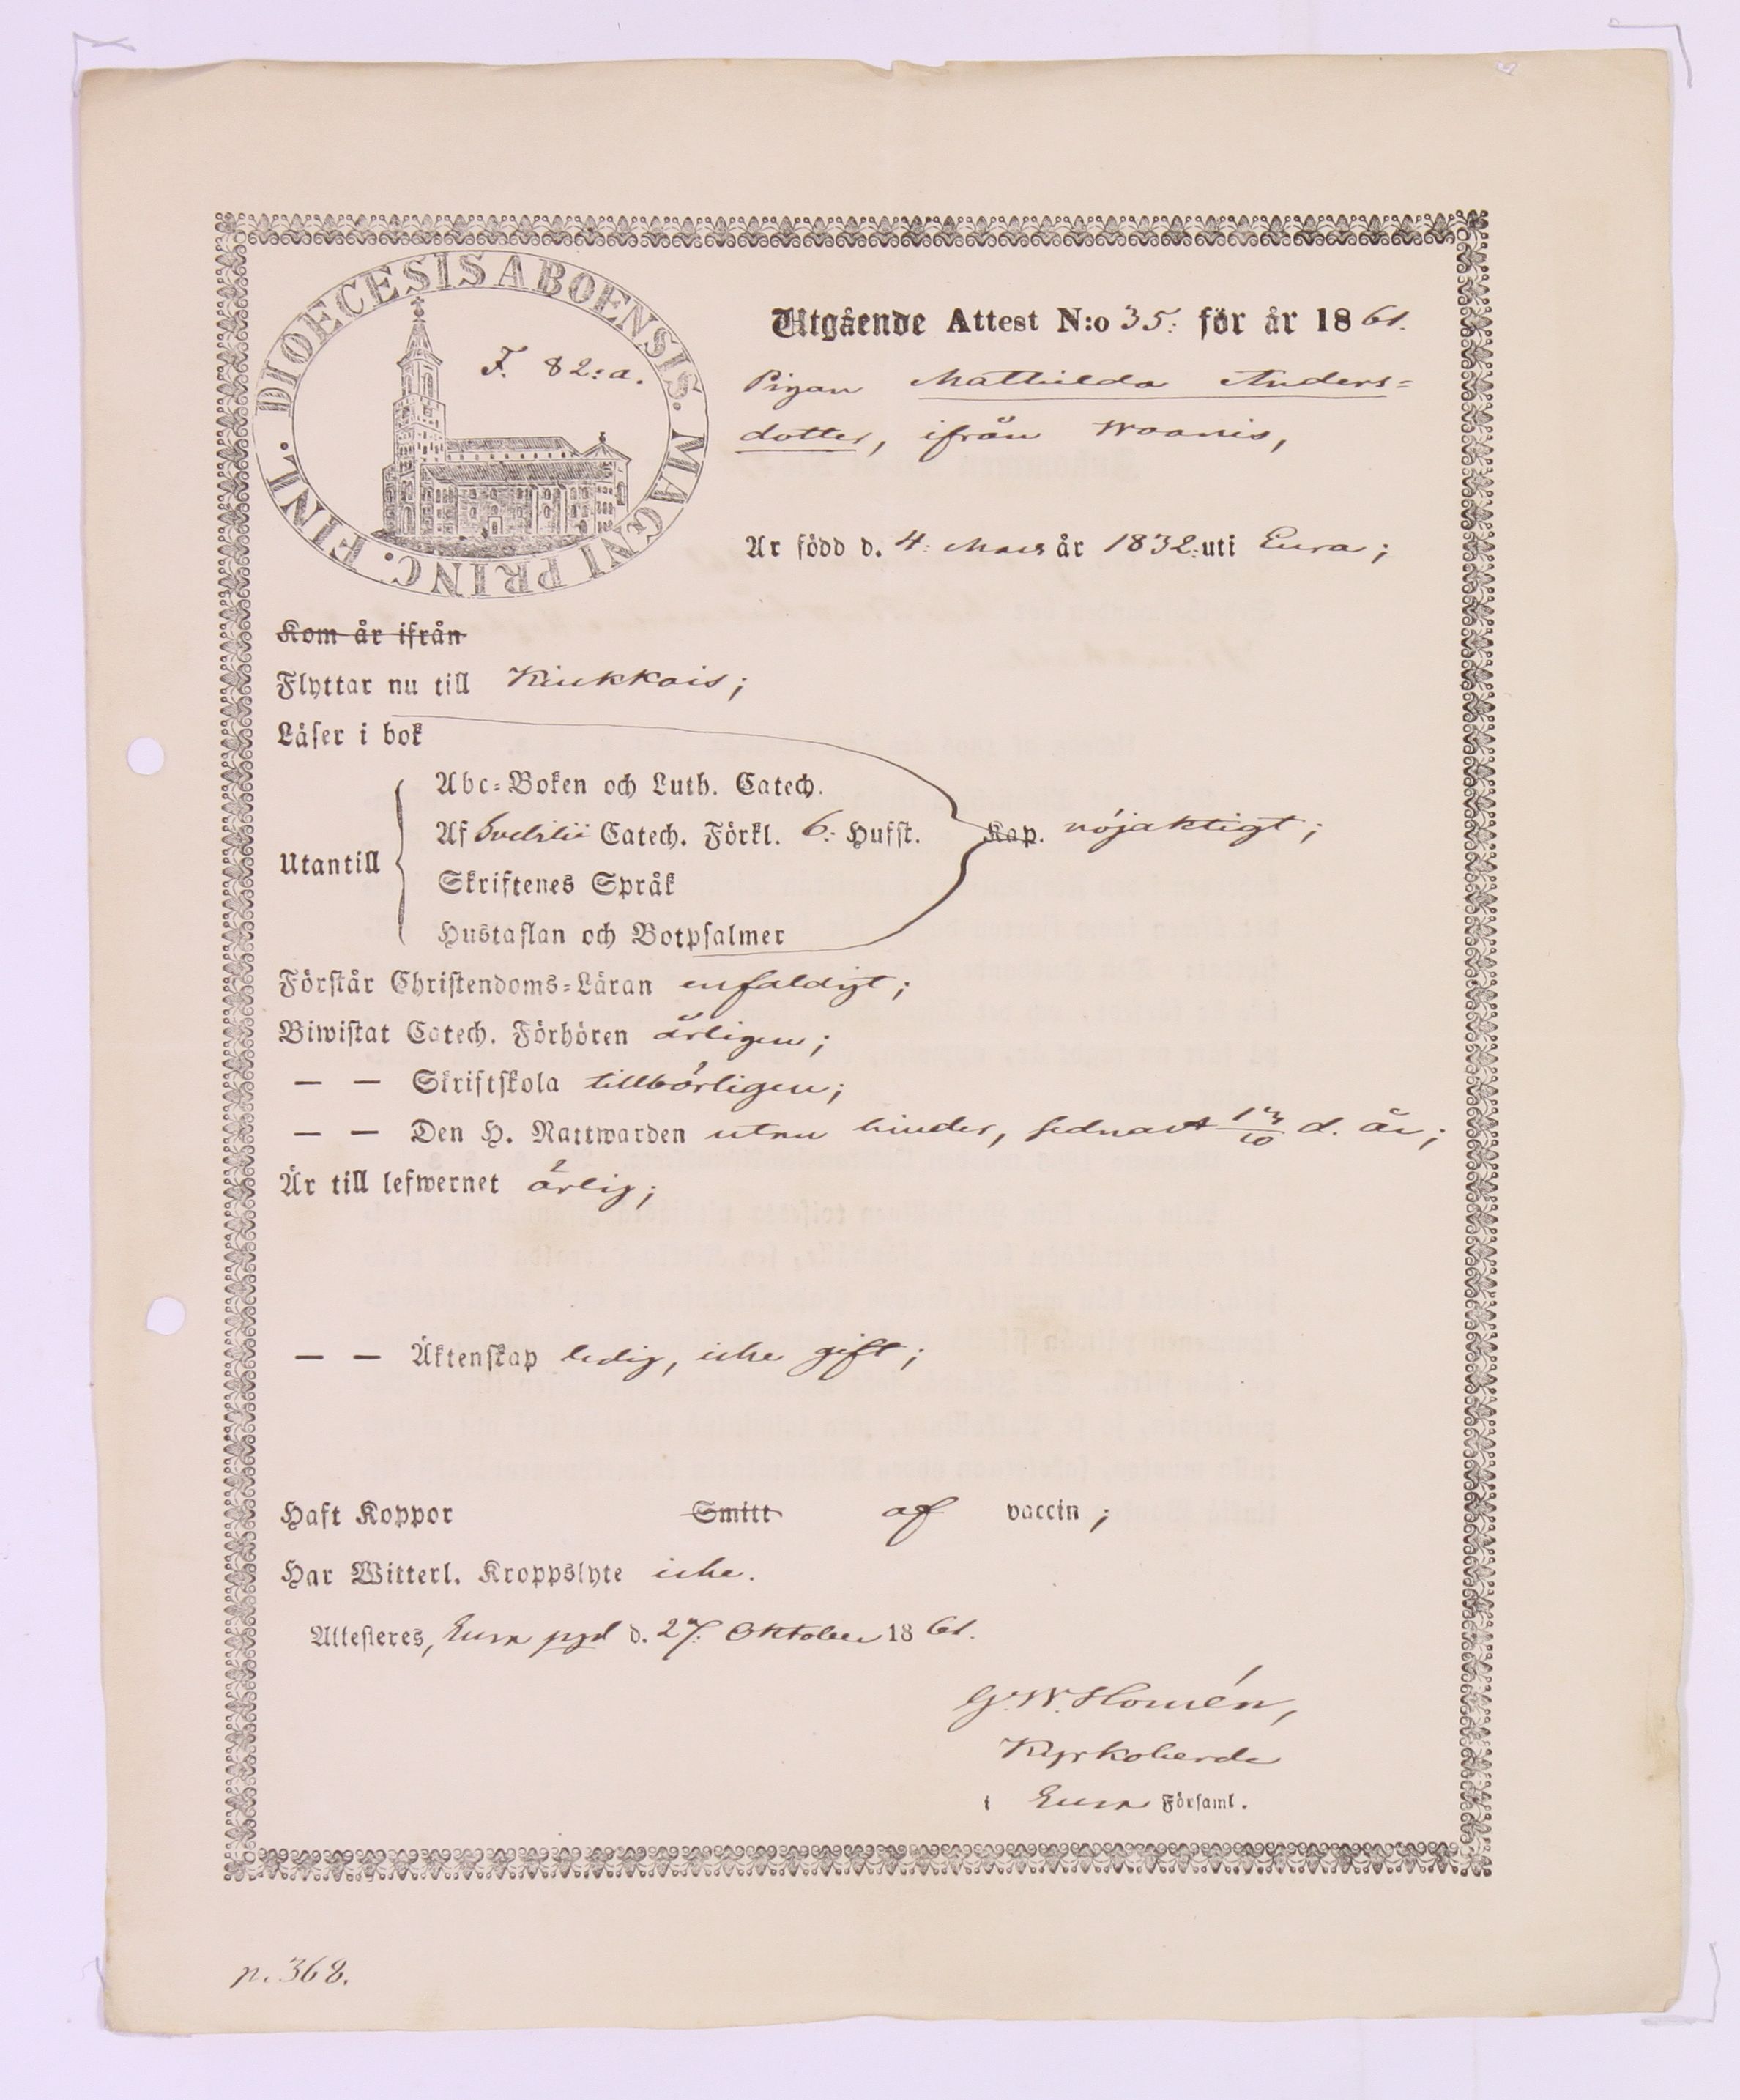 DIOECESIS ABOENSIS. MAGNI PRINC. FINL.
F. 82:a.
Utgående Attest N:o 35: för år 1861.
Pigan Mathilda Anders=
dotter, ifrån Woanis,
Är född d. 4: Mars år 1832: uti Eura;
Kom år ifrån
Flyttar nu till Kiukkais;
Läser i bok
Utantill
Abc=Boken och Luth. Catech.
Af Svebilii Catech. Förkl. 6: Hufst. Kap. nöjaktigt;
Skriftenes Språk
Hustaflan och Botpsalmer
Förstår Christendoms=Läran enfaldigt;
Biwistat Catech. Förhören årligen;
— — Skriftskola tillbörligen;
— — Den H. Nattwarden utan hinder, sednast 13/10 d. år;
Är till lefwernet ärlig;
— — Äktenskap ledig, icke gift;
Haft Koppor Smitt af vaccin;
Har Witterl. Kroppslyte icke.
Attesteres, Eura pgd d. 27: Oktober 1861.
G. W. Homén,
Kyrkoherde
i Eura Församl.
p. 368.